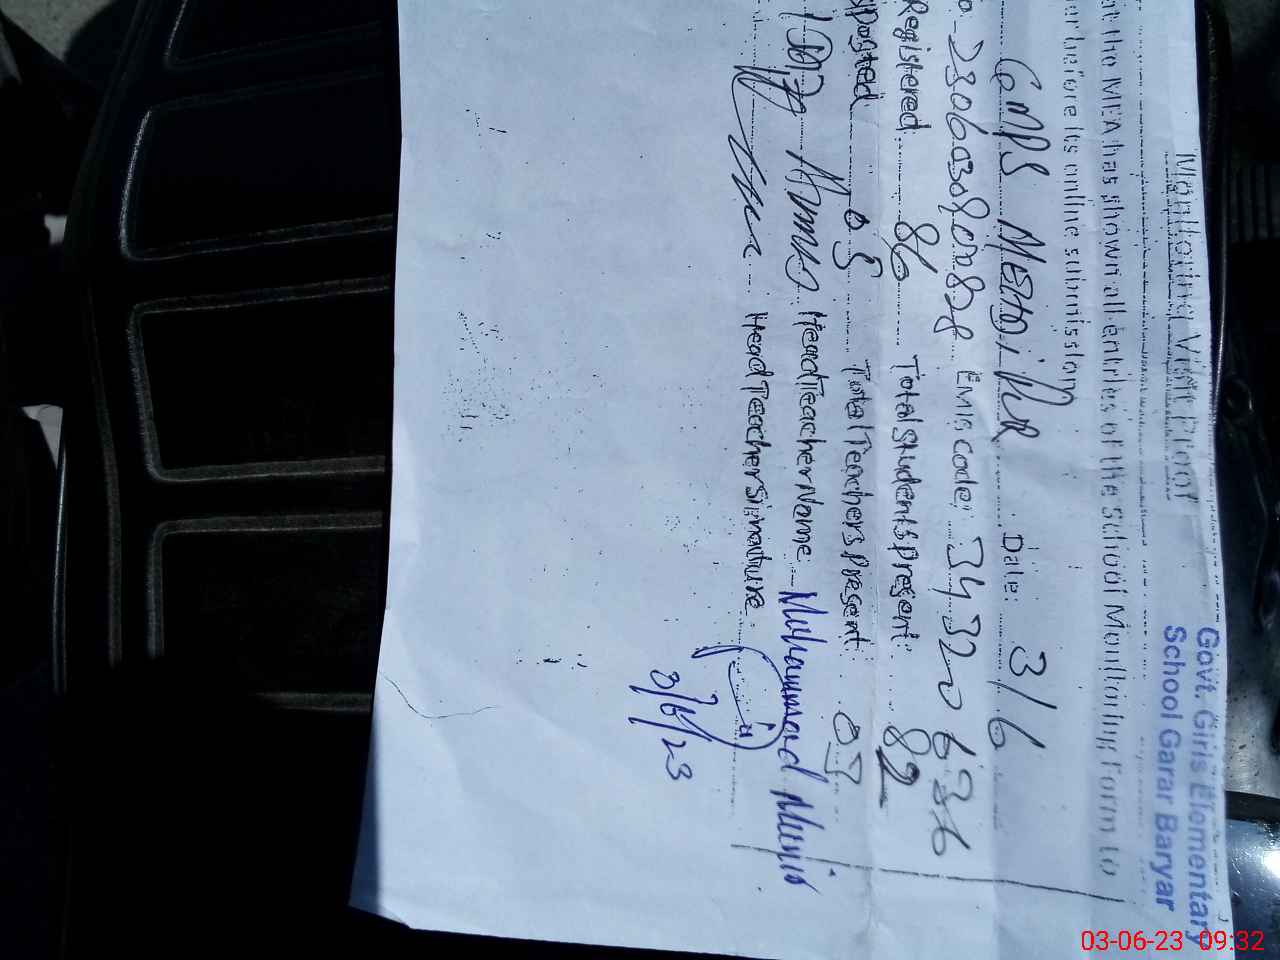 Govt. Girls Elementary
School Garar Baryar
Monitoring Visit Proof
at the MEA has shown all entries of the School Monitoring Form to
before its online submission
GMPS Date: 3/6
EMIS code: 34320636
Registered 86 Total students present: 82
posted 05 Total Teachers present: 03
Head Teacher Name: Muhammad Munir
Head Teacher Signature
3/6/23
03-06-23 09:32